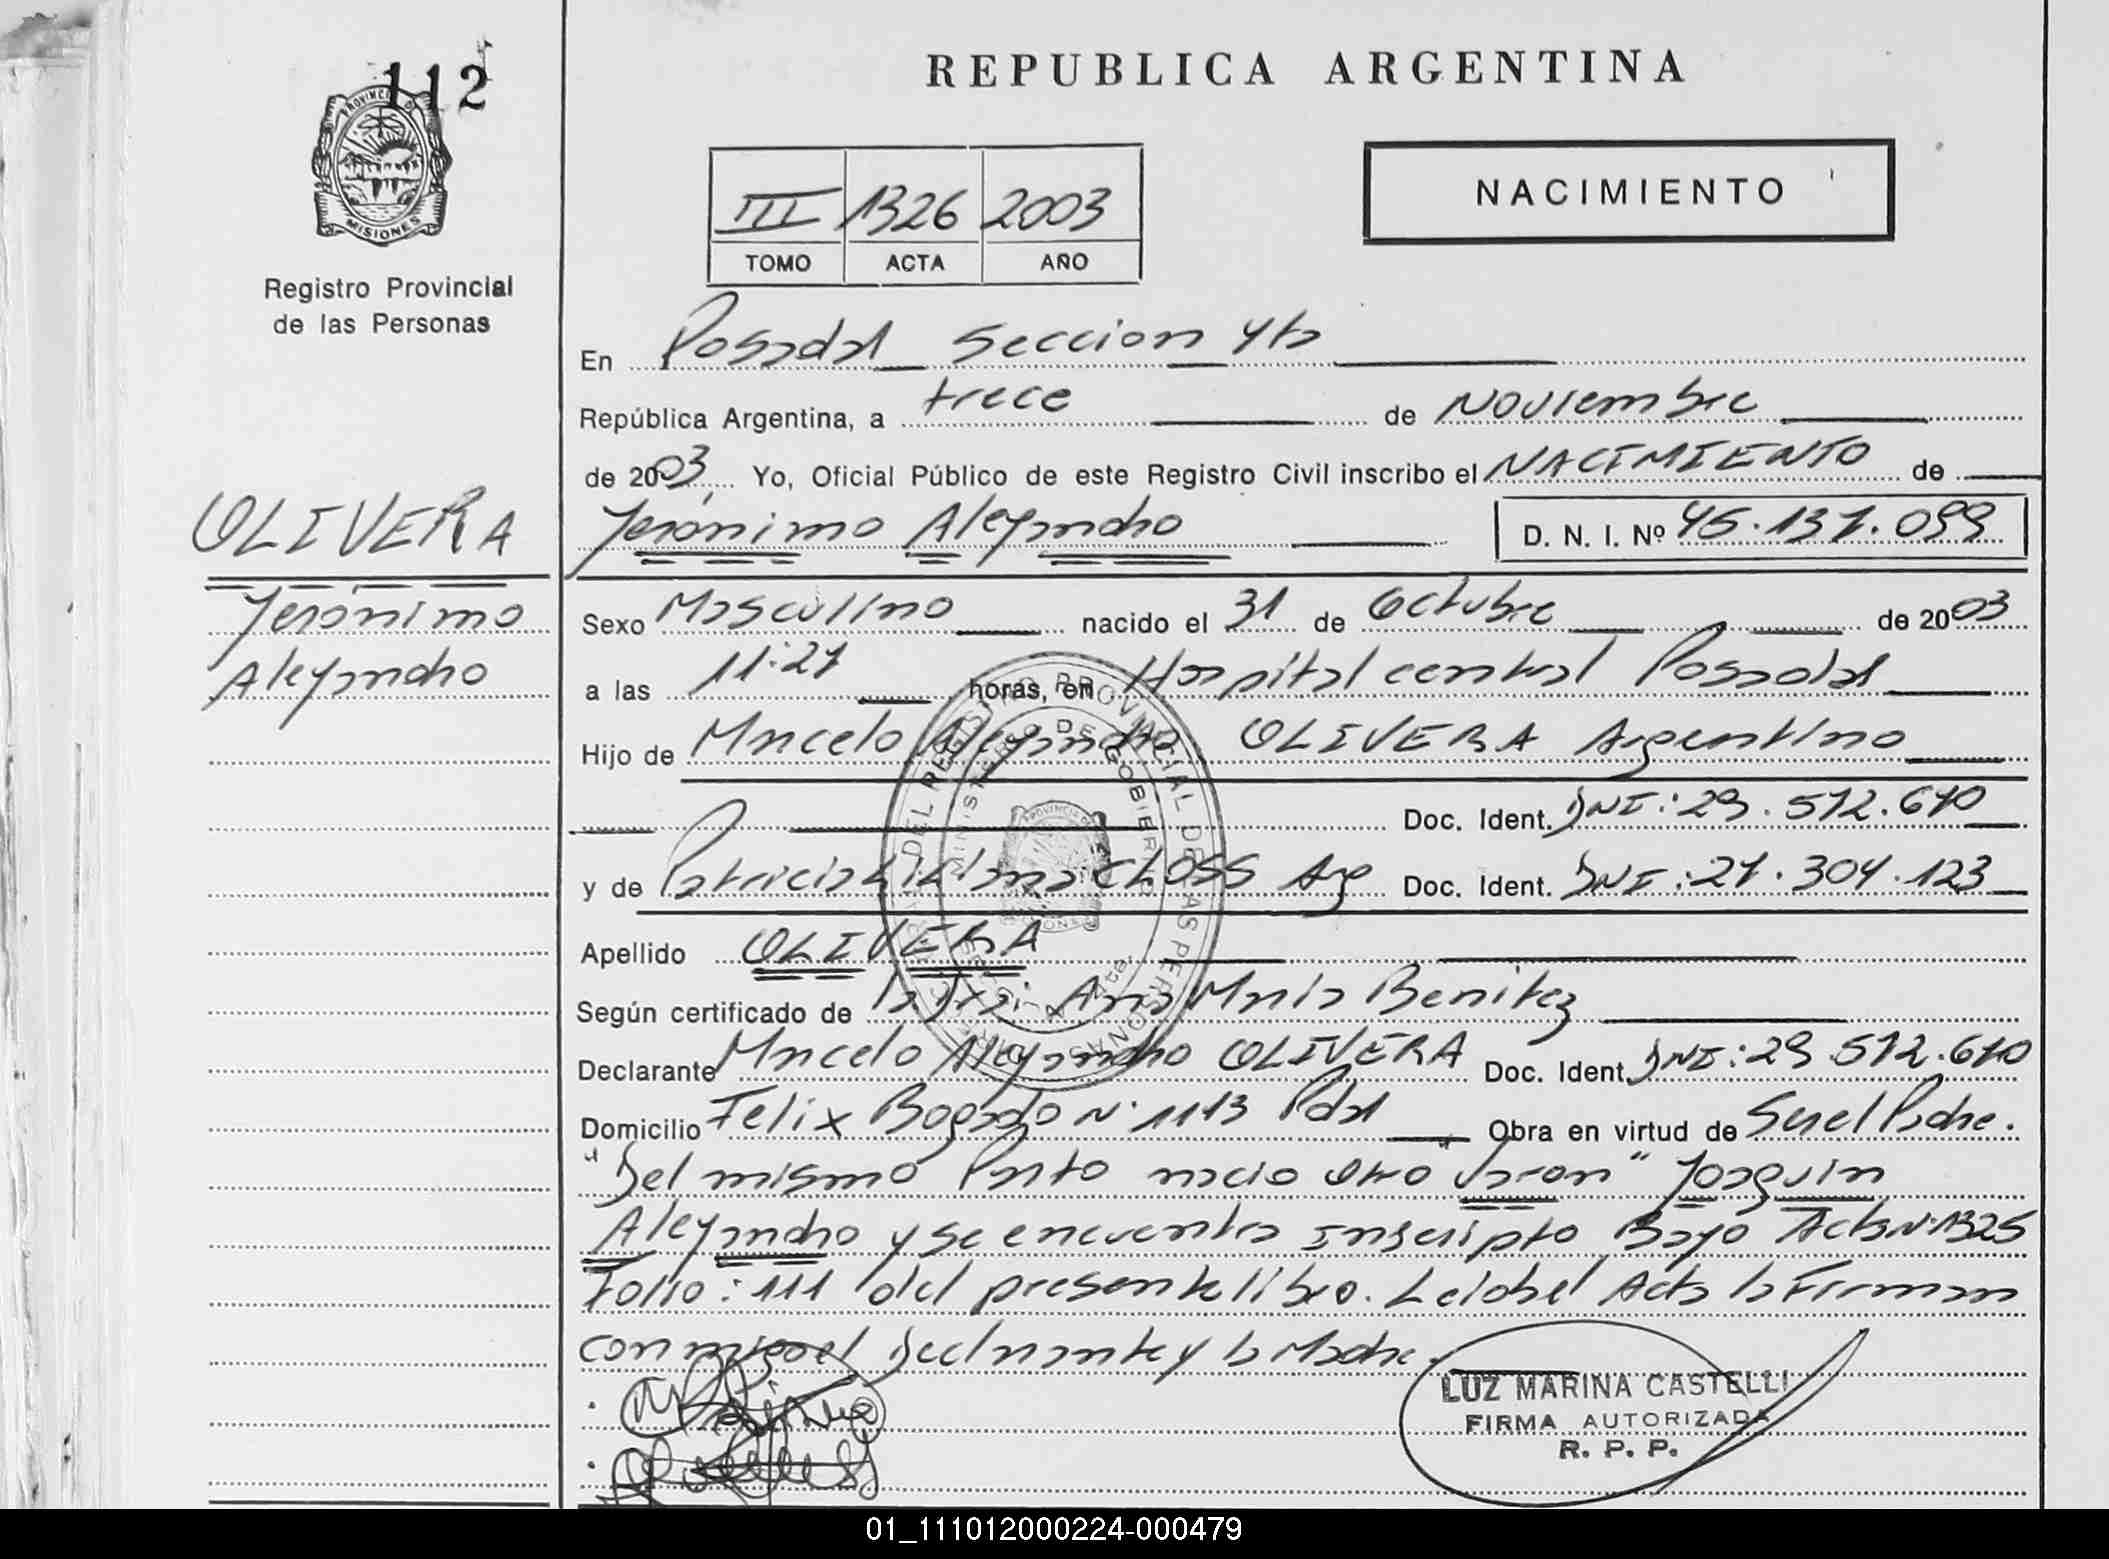 112
PROVINCIA DE
MISIONES
Registro Provincial
de las Personas
REPUBLICA ARGENTINA
III 1326 2003
TOMO ACTA AÑO
NACIMIENTO
En Posadas Seccion 4ta
República Argentina, a trece de Noviembre
de 2003, Yo, Oficial Público de este Registro Civil inscribo el NACIMIENTO de
Jerónimo Alejandro D. N. I. Nº 45.137.099
OLIVERA
Jerónimo
Alejandro
Sexo Masculino nacido el 31 de Octubre de 2003
a las 11:27 horas, en Hospital central Posadas
Hijo de Marcelo Alejandro OLIVERA Argentino
Doc. Ident. DNI: 29.572.670
y de Patricia Liliana CLOSS Arg Doc. Ident. DNI: 27.304.123
Apellido OLIVERA
Según certificado de la Ana Maria Benitez
Declarante Marcelo Alejandro OLIVERA Doc. Ident. DNI: 29.572.670
Domicilio Felix Bogado N° 1113 Pdas Obra en virtud de Ser el Padre.
"Del mismo Parto nacio otro "Varon" Joaquin
Alejandro y se encuentra inscripto Bajo Acta N° 1325
Folio: 111 del presente libro. Leida el Acta la Firman
conmigo el Declarante y la Madre.
LUZ MARINA CASTELLI
FIRMA AUTORIZADA
R. P. P.
01_111012000224-000479